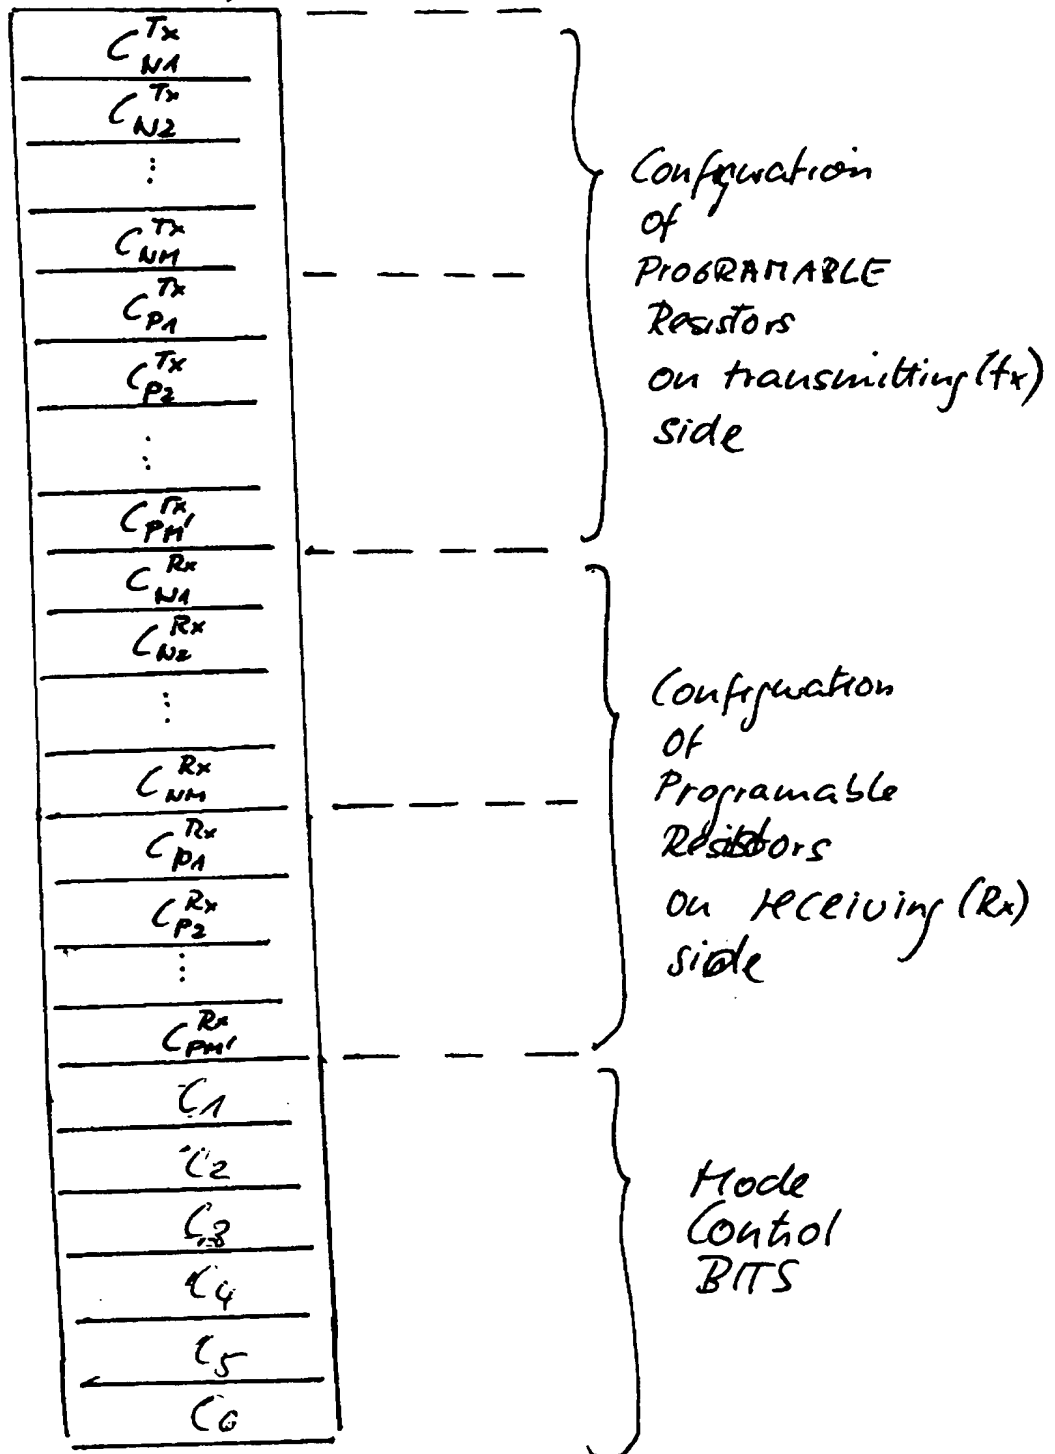 C_N1^Tx
C_N2^Tx
⋮
C_NM^Tx
C_P1^Tx
C_P2^Tx
⋮
C_PM'^Tx
C_N1^Rx
C_N2^Rx
⋮
C_NM^Rx
C_P1^Rx
C_P2^Rx
⋮
C_PM'^Rx
C1
C2
C3
C4
C5
C6
Configuration
of
PROGRAMABLE
Resistors
on transmitting (tx)
side
Configuration
of
Programable
Resistors
on receiving (Rx)
side
Mode
Control
BITS